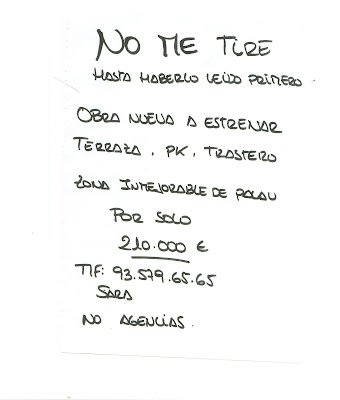 NO ME TIRE
HASTA HABERLO LEIDO PRIMERO
OBRA NUEVA A ESTRENAR
TERRAZA, PK, TRASTERO
ZONA INMEJORABLE DE PALAU
POR SOLO
210.000 €
Tlf: 93.579.65.65
SARA
NO AGENCIAS.